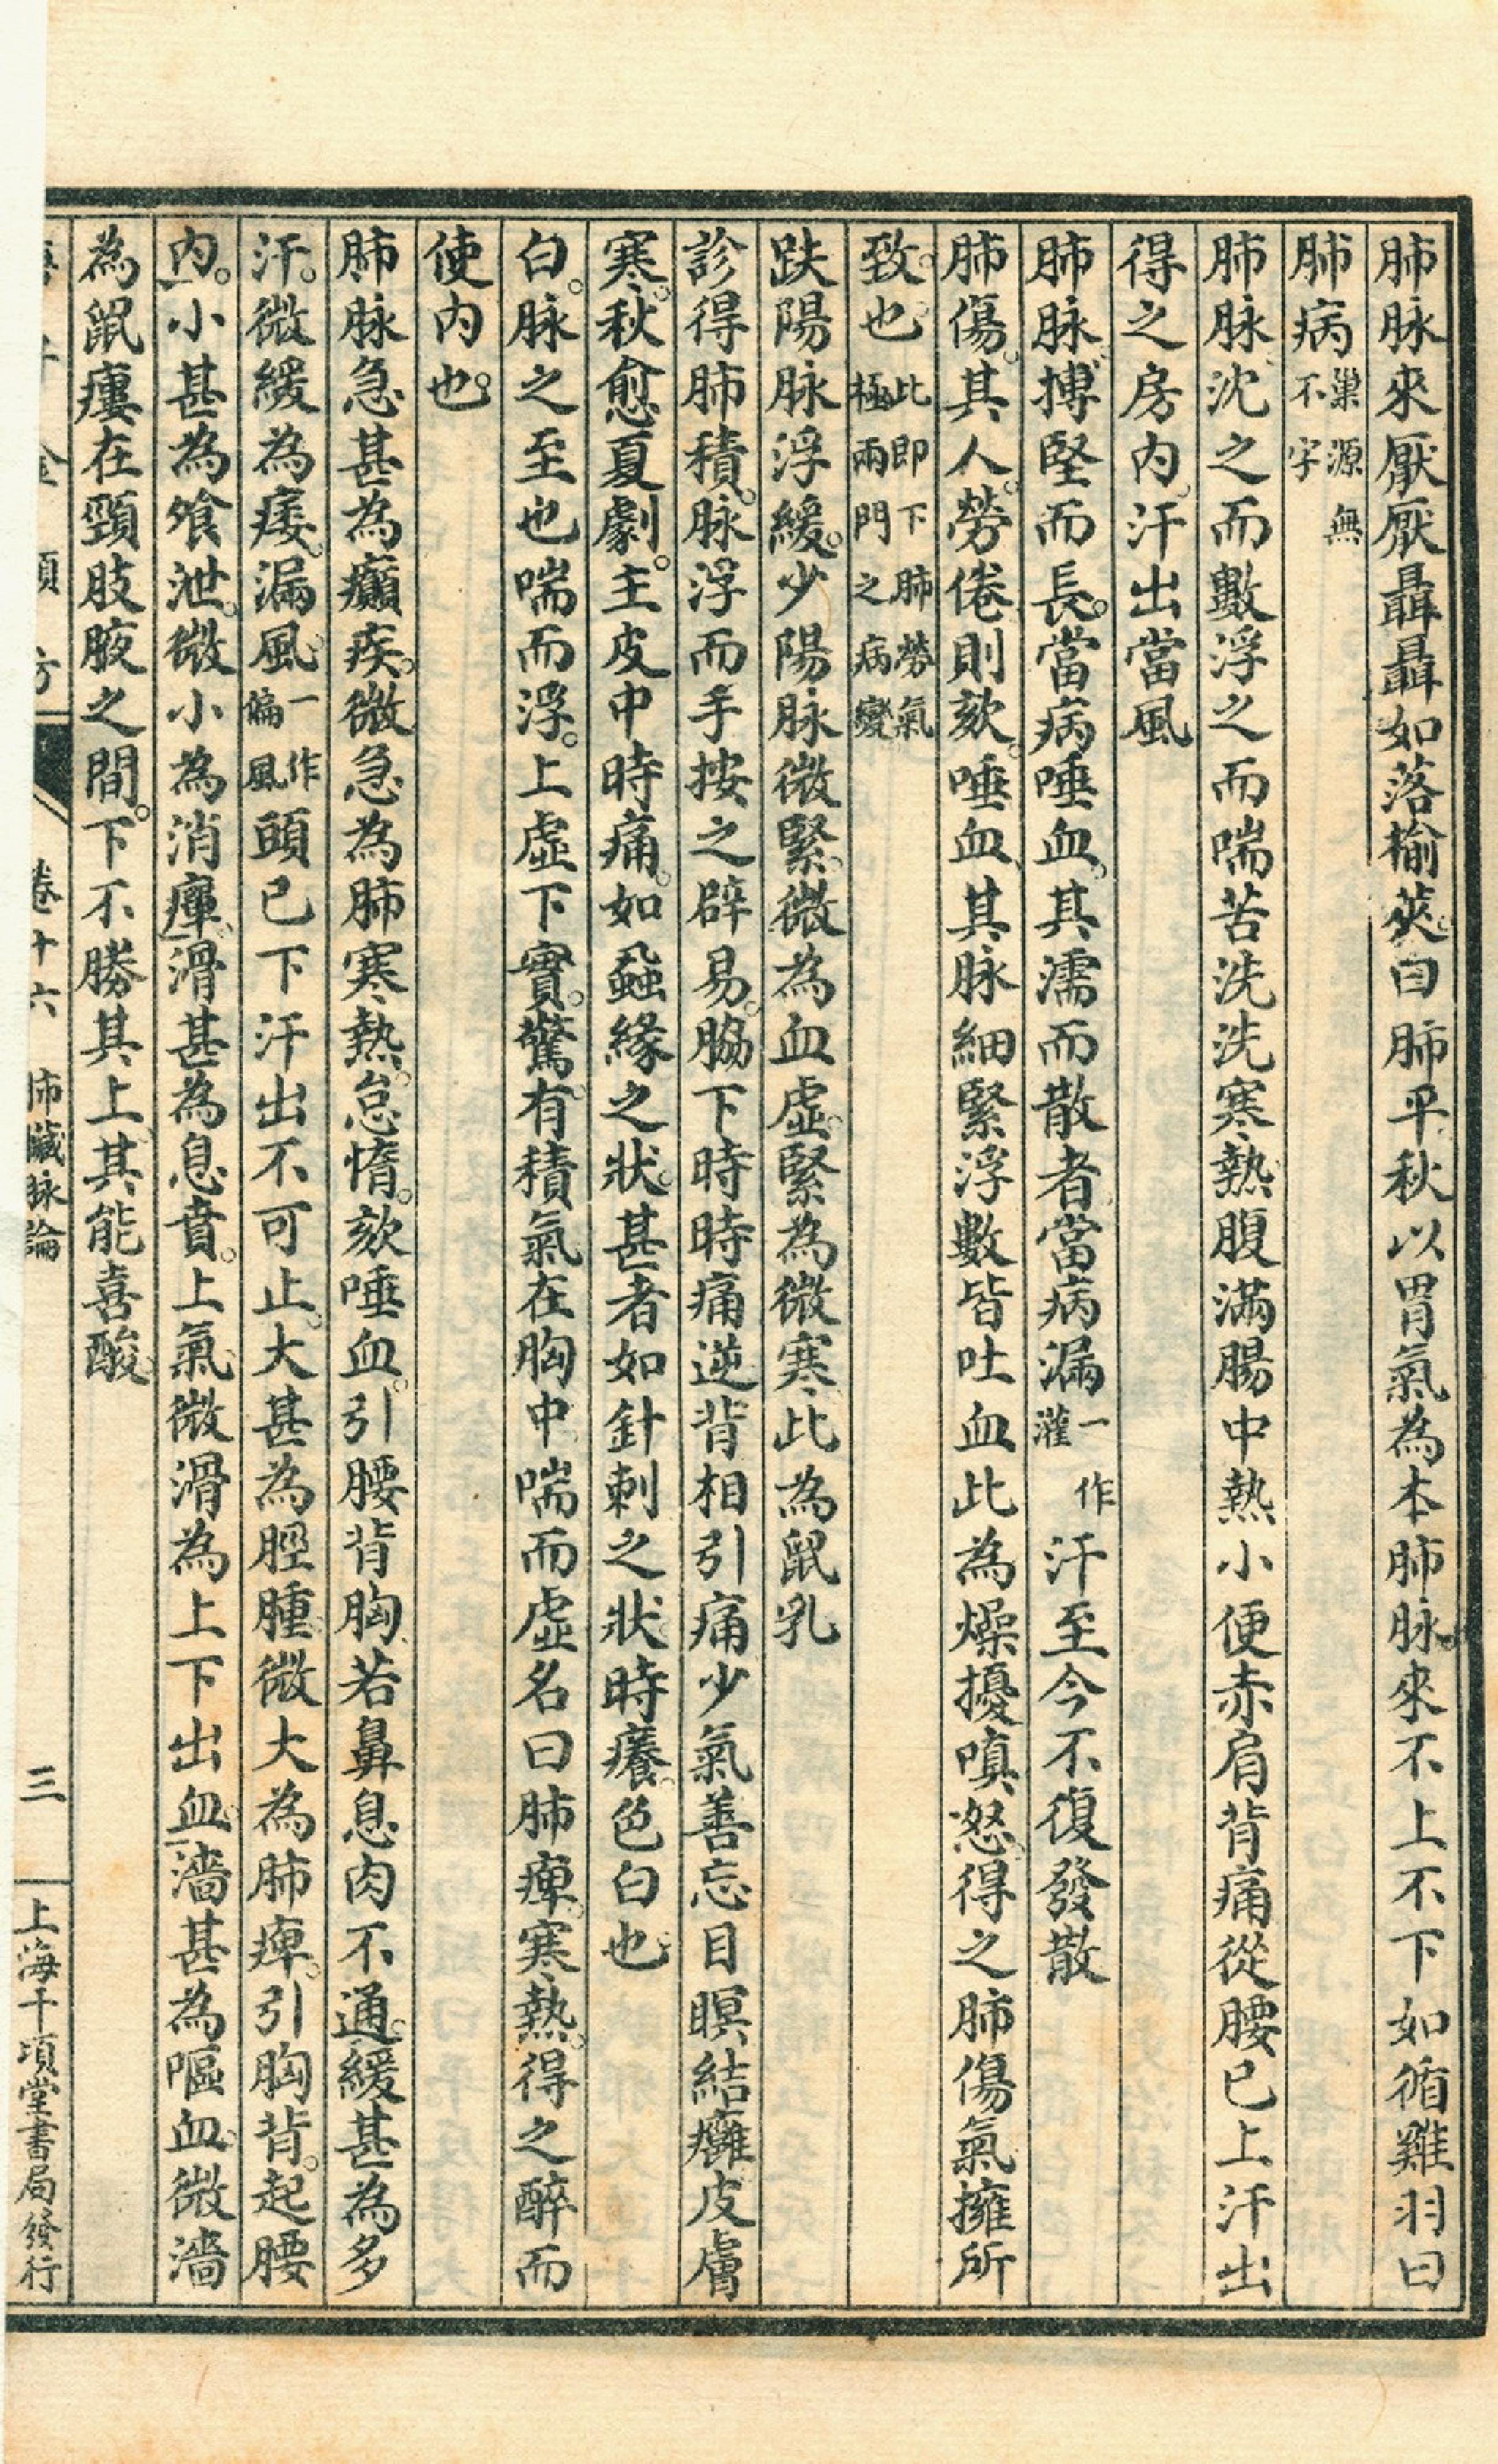 肺脉來厭厭聶聶如落榆莢曰肺平秋以胃氣為本肺脉來不上不下如循雞羽曰
肺病巢源無不字
肺脉沈之而數浮之而喘苦洗洗寒熱腹滿腸中熱小便赤肩背痛從腰已上汗出
得之房內汗出當風
肺脉搏堅而長當病唾血其濡而散者當病漏一作灌汗至今不復發散
肺傷其人勞倦則欬唾血其脉細緊浮數皆吐血此為燥擾嗔怒得之肺傷氣擁所
致也此即下肺勞氣極兩門之病變
趺陽脉浮緩少陽脉微緊微為血虛緊為微寒此為鼠乳
診得肺積脉浮而手按之辟易脇下時時痛逆背相引痛少氣善忘目瞑結癰皮膚
寒秋愈夏劇主皮中時痛如蝨緣之狀甚者如針刺之狀時癢色白也
白脉之至也喘而浮上虛下實驚有積氣在胸中喘而虛名曰肺痺寒熱得之醉而
使內也
肺脉急甚為癲疾微急為肺寒熱怠惰欬唾血引腰背胸若鼻息肉不通緩甚為多
汗微緩為痿漏風一作偏風頭已下汗出不可止大甚為脛腫微大為肺痺引胸背起腰
內小甚為飧泄微小為消癉滑甚為息賁上氣微滑為上下出血濇甚為嘔血微濇
為鼠瘻在頸肢腋之間下不勝其上其能喜酸
卷十六 肺臟脉論
三
上海千頃堂書局發行